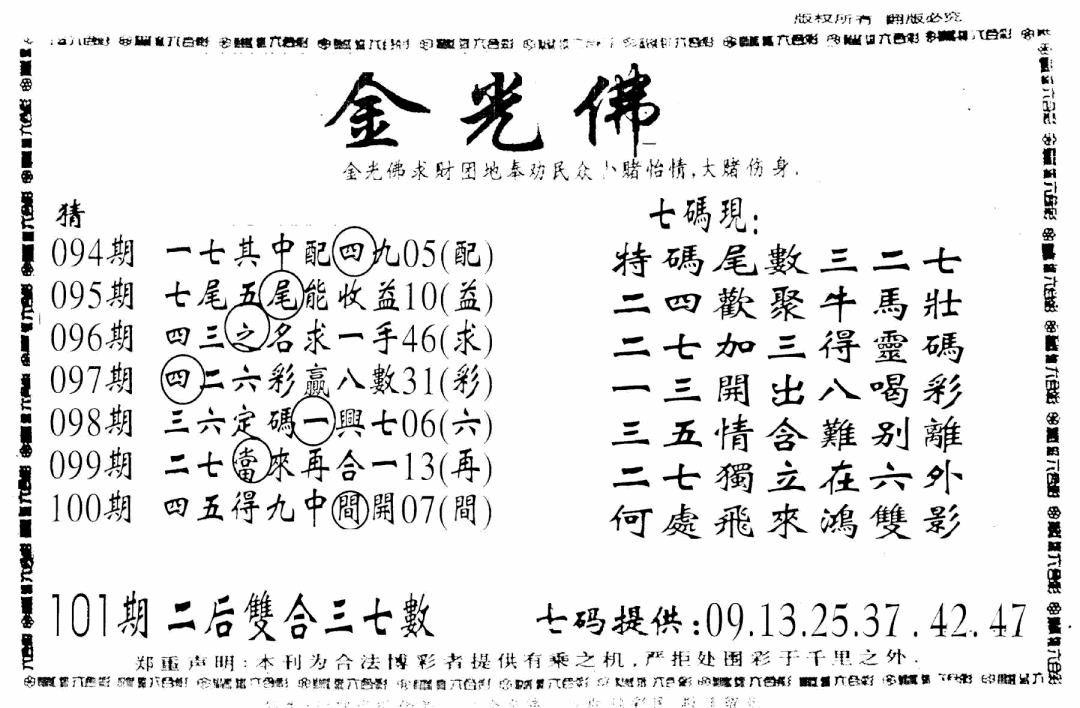 版权所有 翻版必究
金光佛
金光佛求財团地奉劝民众小賭怡情,大賭伤身.
猜
094期 一七其中配四九05(配)
095期 七尾五尾能收益10(益)
096期 四三之名求一手46(求)
097期 四二六彩贏八數31(彩)
098期 三六定碼一興七06(六)
099期 二七當來再合一13(再)
100期 四五得九中間開07(間)
七碼現:
特碼尾數三二七
二四歡聚牛馬壯
二七加三得靈碼
一三開出八喝彩
三五情含難别離
二七獨立在六外
何處飛來鴻雙影
101期 二后雙合三七數
七码提供:09.13.25.37.42.47
郑重声明:本刊为合法博彩者提供有乘之机,严拒处围彩于千里之外.